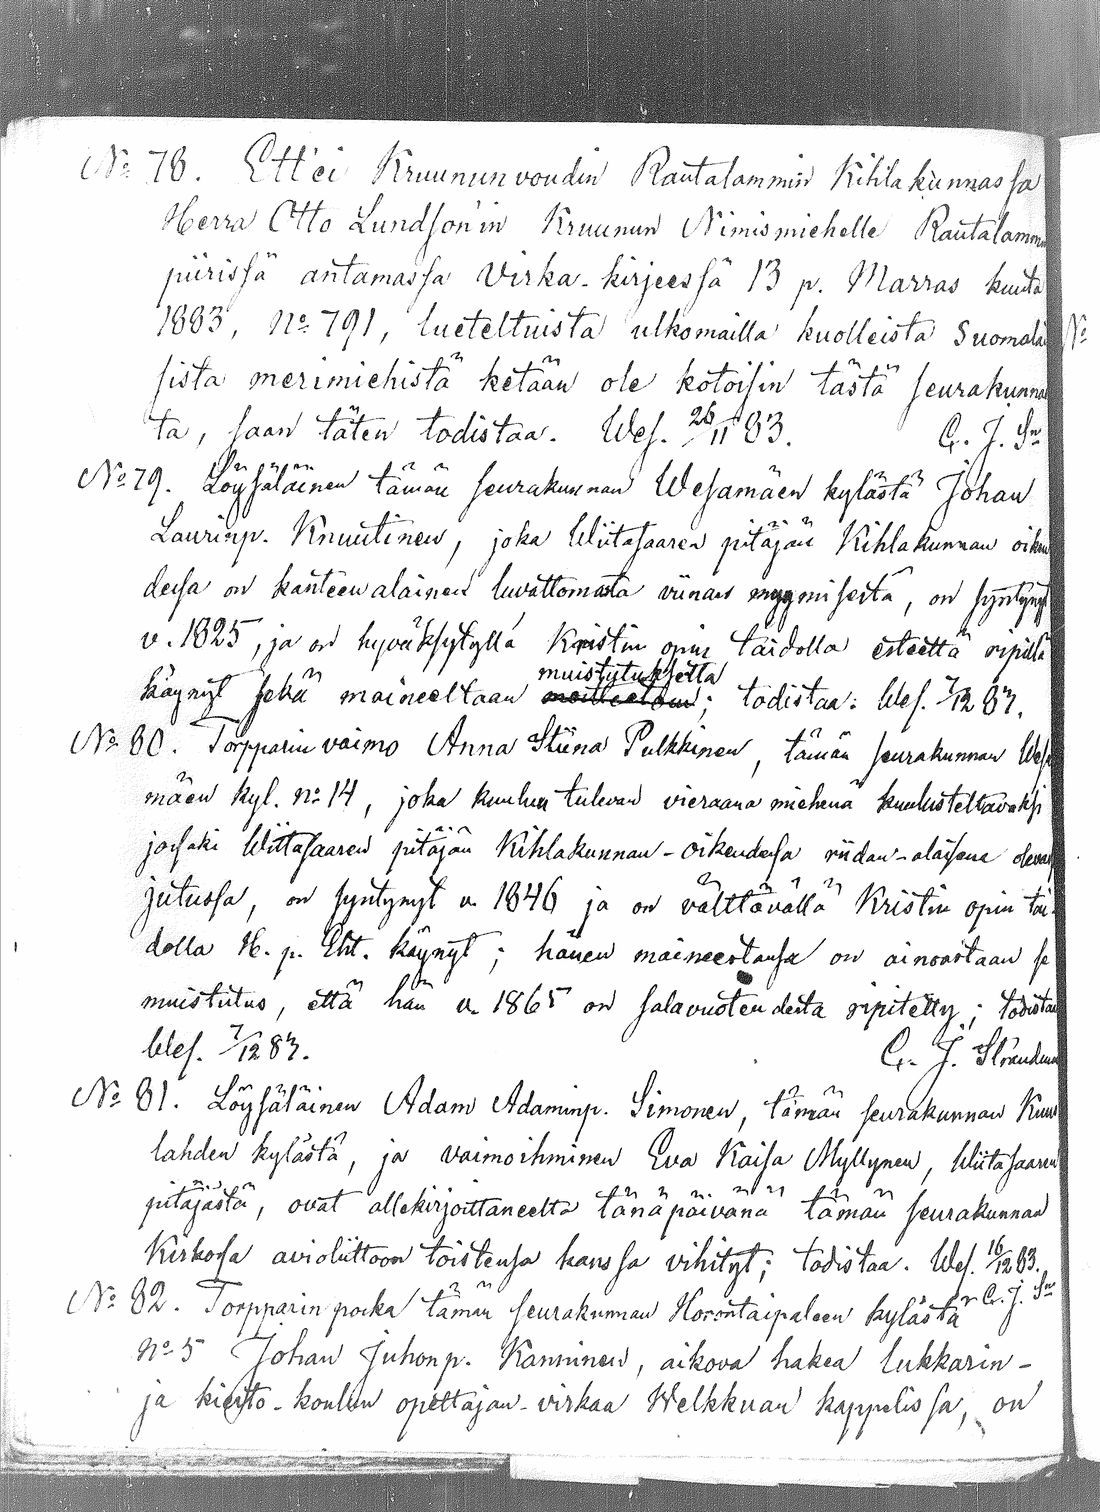 No 78. Ett'ei Kruununvoudin Rautalammin Kihlakunnassa
Herra Otto Lundson'in Kruunun Nimismiehelle Rautalammin
piirissä antamassa Virka-kirjeessä 13 p. Marras kuuta
1883, No 791, lueteltuista ulkomailla kuolleista Suomalai
sista merimiehistä ketään ole kotoisin tästä seurakunnas
ta, saan täten todistaa. Wes. 26/11 83. C. J. Sn
No 79. Löysäläinen tämän seurakunnan Wesamäen kylästä Johan
Laurinp. Knuutinen, joka Wiitasaaren pitäjän Kihlakunnan oikeu
dessa on kanteenalainen luvattomasta viinan myymisestä, on syntynyt
v. 1825, ja on hyväksytyllä Kristin opin taidolla esteettä ripillä
muistutuksetta
käynyt sekä maineeltaan ; todistaa: Wes. 7/12 83.
No 80. Torpparin vaimo Anna Stiina Pulkkinen, tämän seurakunnan Wesa
mäen kyl. No 14, joka kuuluu tulevan vieraana miehenä kuulusteltavaksi
jossaki Wiitasaaren pitäjän Kihlakunnan-oikeudessa riidan-alaisena olevassa
jutussa, on syntynyt v. 1846 ja on välttävällä Kristin opin tai-
dolla H. p. Eht. käynyt; hänen maineestansa on ainoastaan se
muistutus, että hän v. 1865 on salavuoteudesta ripitetty; todistaa
Wes. 7/12 83. C. J. Strandman
No 81. Löysäläinen Adam Adaminp. Simonen, tämän seurakunnan Kuus
lahden kylästä, ja vaimoihminen Eva Kaisa Myllynen, Wiitasaaren
pitäjästä, ovat allekirjoittaneelta tänäpäivänä tämän seurakunnan
Kirkossa avioliittoon toistensa kanssa vihityt; todistaa. Wes. 16/12 83.
C. J. Sn
No 82. Torpparin poika tämän seurakunnan Horontaipaleen kylästä
No 5 Johan Juhonp. Kanninen, aikova hakea lukkarin-
ja kierto-koulun opettajan-virkaa Welkkuan kappelissa, on